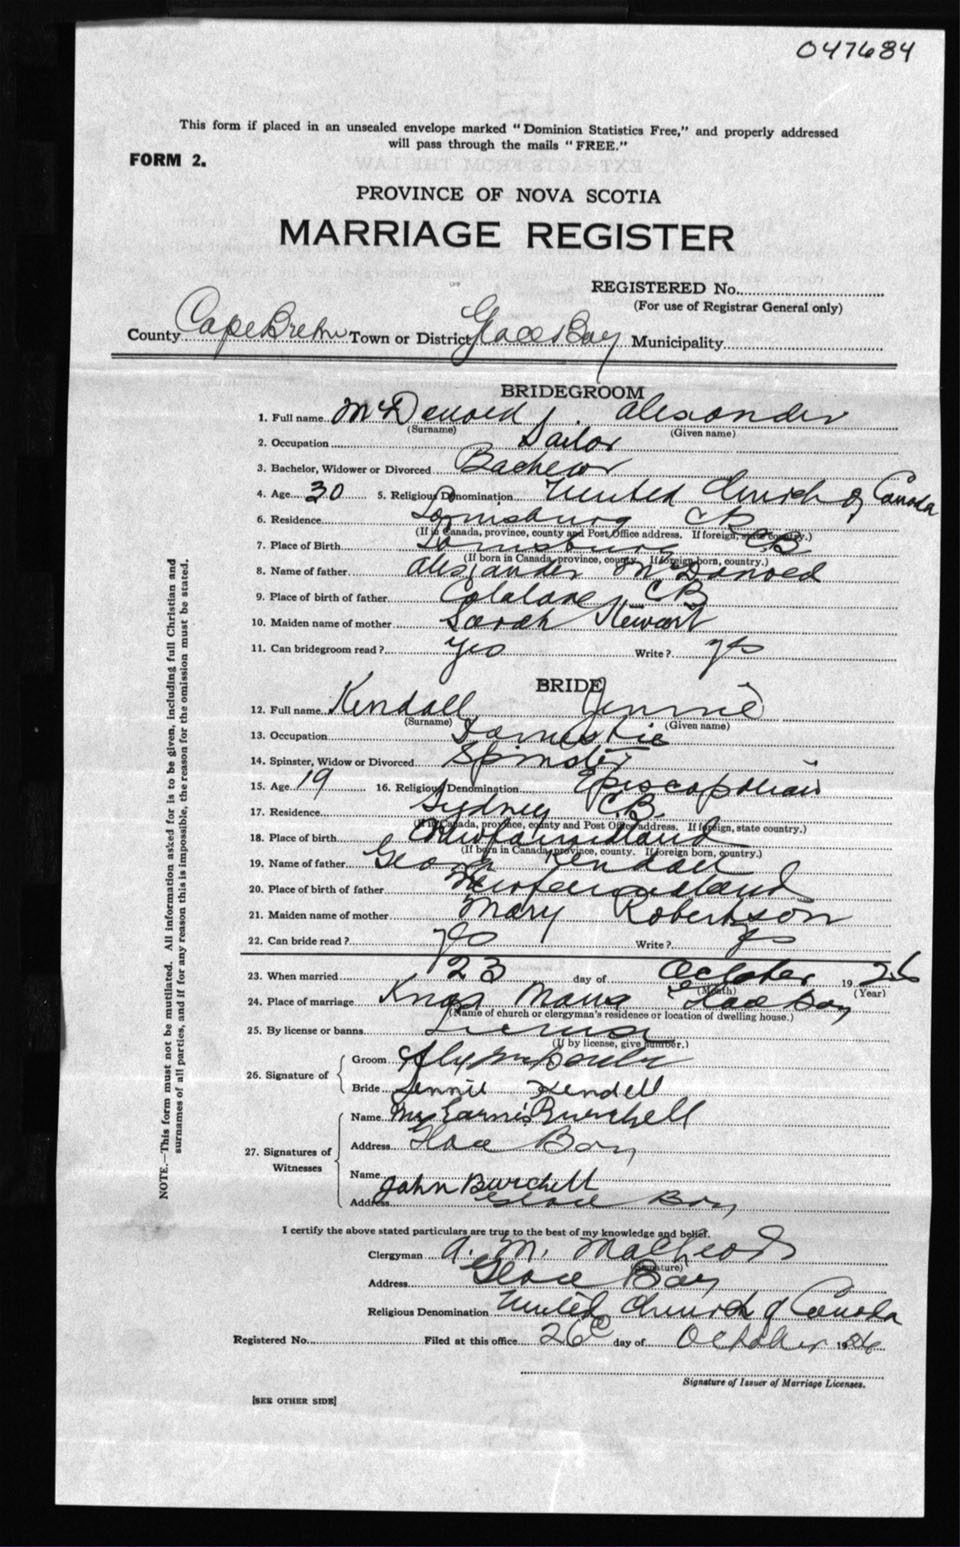 047684
This form if placed in an unsealed envelope marked "Dominion Statistics Free," and properly addressed
will pass through the mails "FREE."
FORM 2.
PROVINCE OF NOVA SCOTIA
MARRIAGE REGISTER
REGISTERED No.
(For use of Registrar General only)
County Cape Breton Town or District Glace Bay Municipality
BRIDEGROOM
1. Full name McDonald Alexander
(Surname) (Given name)
2. Occupation Sailor
3. Bachelor, Widower or Divorced Bachelor
4. Age 30 5. Religious Denomination United Church of Canada
6. Residence Louisburg CB
(If in Canada, province, county and Post Office address. If foreign, state country.)
7. Place of Birth Louisburg CB
(If born in Canada, province, county. If foreign born, country.)
8. Name of father Alexander McDonald
9. Place of birth of father Catalone CB
10. Maiden name of mother Sarah Stewart
11. Can bridegroom read? Yes Write? Yes
BRIDE
12. Full name Kendall Jennie
(Surname) (Given name)
13. Occupation Domestic
14. Spinster, Widow or Divorced Spinster
15. Age 19 16. Religious Denomination Episcopalian
17. Residence Sydney C.B.
(If in Canada, province, county and Post Office address. If foreign, state country.)
18. Place of birth Newfoundland
(If born in Canada, province, county. If foreign born, country.)
19. Name of father George Kendall
20. Place of birth of father Newfoundland
21. Maiden name of mother Mary Robertson
22. Can bride read? Yes Write? Yes
23. When married 23 day of October 1926
(Month) (Year)
24. Place of marriage Knox Manse Glace Bay
(Name of church or clergyman's residence or location of dwelling house.)
25. By license or banns License
(If by license, give number.)
26. Signature of Groom
Bride Jennie Kendell
27. Signatures of Witnesses Name Mrs Burchell
Address Glace Bay
Name John Burchell
Address Glace Bay
I certify the above stated particulars are true to the best of my knowledge and belief.
Clergyman A. M. MacLeod
(Signature)
Address Glace Bay
Religious Denomination United Church of Canada
Registered No. Filed at this office 26 day of October 1926
Signature of Issuer of Marriage Licenses.
[SEE OTHER SIDE]
NOTE.—This form must not be mutilated. All information asked for is to be given, including full Christian and
surnames of all parties, and if for any reason this is impossible, the reason for the omission must be stated.